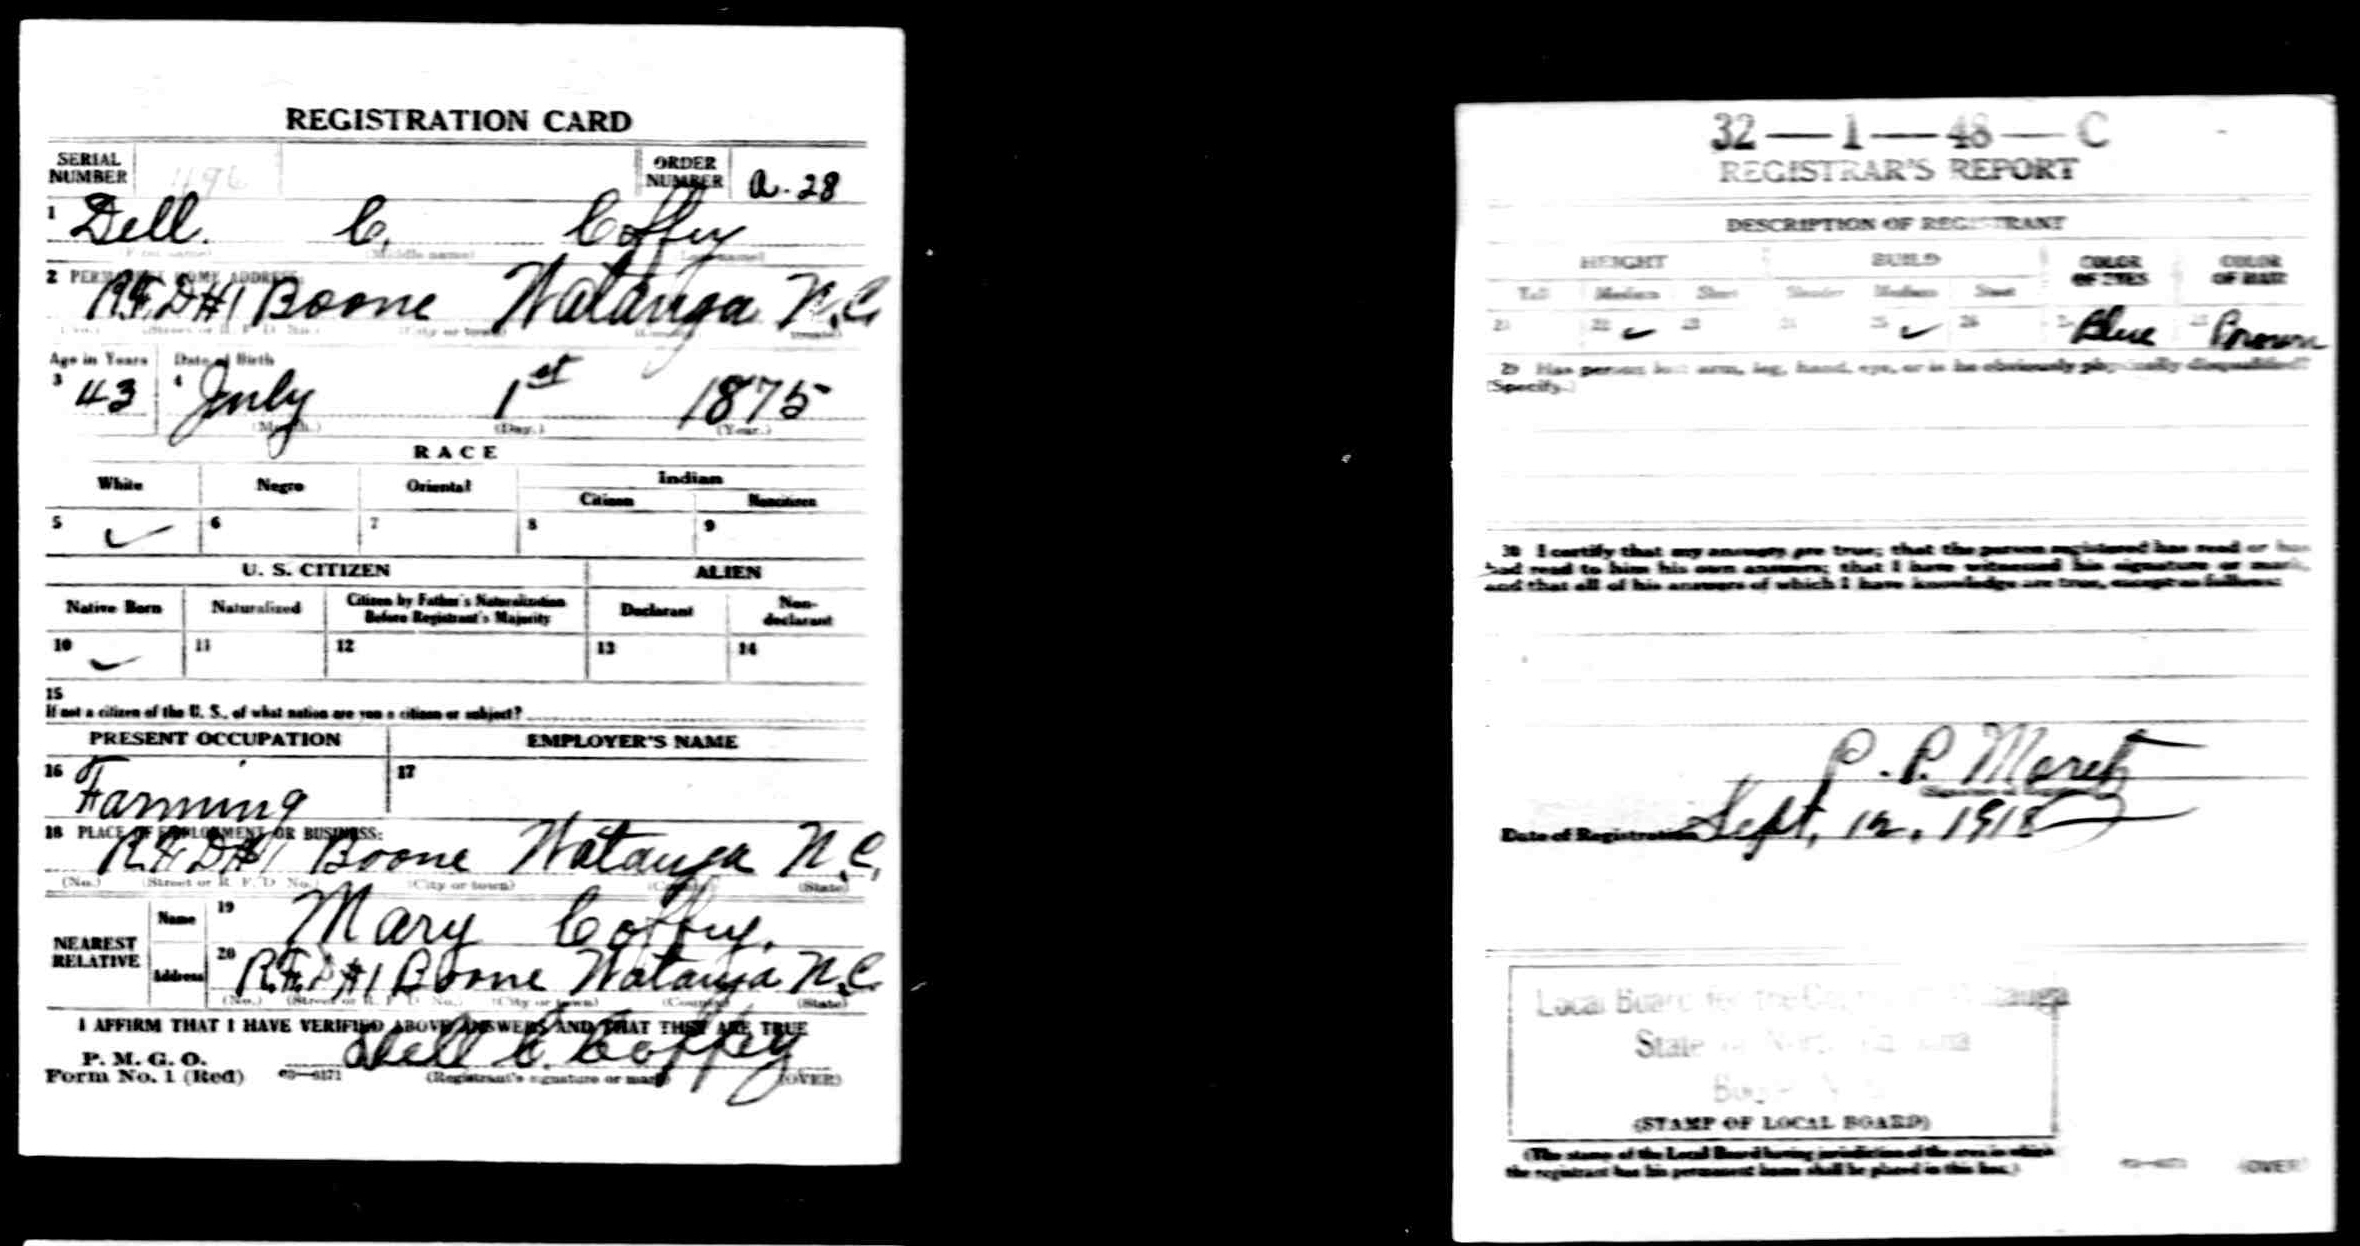 REGISTRATION CARD
SERIAL NUMBER 1196 ORDER NUMBER a-28
1 Dell. C. Coffey
(Middle name)
2 PERMANENT HOME ADDRESS:
R.F.D #1 Boone Watauga N.C.
Age in Years Date of Birth
3 43 4 July 1st 1875
(Month.) (Day.) (Year.)
RACE
White Negro Oriental Indian
Citizen Noncitizen
5 ✓ 6 7 8 9
U. S. CITIZEN ALIEN
Native Born Naturalized Citizen by Father's Naturalization Before Registrant's Majority Declarant Non-declarant
10 ✓ 11 12 13 14
15
If not a citizen of the U. S., of what nation are you a citizen or subject?
PRESENT OCCUPATION EMPLOYER'S NAME
16 Farming 17
18 PLACE OF EMPLOYMENT OR BUSINESS:
R.F.D #1 Boone Watauga N.C.
(No.) (Street or R. F. D. No.) (City or town) (County) (State)
NEAREST RELATIVE
Name 19 Mary Coffey.
Address 20 R.F.D #1 Boone Watauga N.C.
(No.) (Street or R. F. D. No.) (City or town) (County) (State)
I AFFIRM THAT I HAVE VERIFIED ABOVE ANSWERS AND THAT THEY ARE TRUE
P. M. G. O.
Form No. 1 (Red) Dell C. Coffey
(Registrant's signature or mark) (OVER)
32—1—48—C
REGISTRAR'S REPORT
DESCRIPTION OF REGISTRANT
HEIGHT BUILD COLOR OF EYES COLOR OF HAIR
Tall Medium Short Slender Medium Stout
21 22 ✓ 23 24 25 ✓ 26 27 Blue 28 Brown
29 Has person lost arm, leg, hand, eye, or is he obviously physically disqualified?
(Specify.)
30 I certify that my answers are true; that the person registered has read or has
had read to him his own answers; that I have witnessed his signature or mark,
and that all of his answers of which I have knowledge are true, except as follows:
P. P. Moretz
Date of Registration Sept, 12, 1918
Local Board for the County of Watauga
State of North Carolina
(STAMP OF LOCAL BOARD)
(The stamp of the Local Board having jurisdiction of the area in which
the registrant has his permanent home shall be placed in this box.)
(OVER)